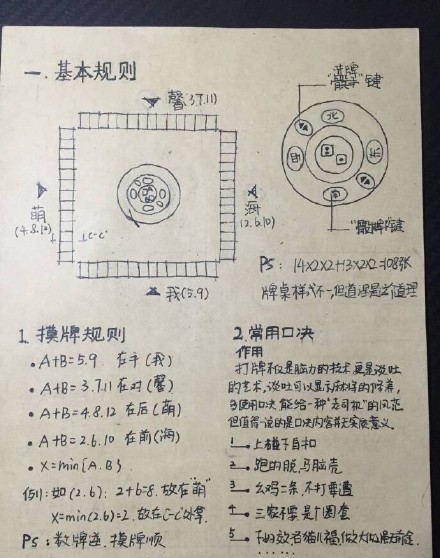 一. 基本规则
馨(3.7.11)
萌
(4.8.12)
海
(2.6.10)
我(5.9)
⊥C-C'
"骰子"键
北
西
东
南
PS: 14×2×2+13×2×2=108张
牌桌样式不一,但道理是这个道理
1. 摸牌规则
• A+B=5.9 在手(我)
• A+B=3.7.11 在对(馨)
• A+B=4.8.12 在后(萌)
• A+B=2.6.10 在前(海)
• X=min{A.B}
例: 如(2.6): 2+6=8. 放在"萌"
X=min(2.6)=2. 放在C-C'处拿.
PS: 数牌逆. 摸牌顺
2. 常用口决
作用
打牌不仅是脑力的技术更是谈吐
的艺术,谈吐可以显示
多使用口决,能给一种"老司机"的风范
但值得一说的是口决内容并无实质意义.
1— 上碰下自和
2— 跑的脱,马脑壳
3— 幺鸡二条,不打要遭
4— 三家不要是个圈套
5—
……